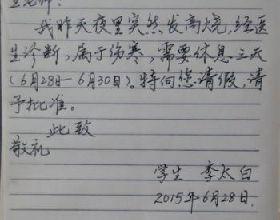 老师:
我昨天夜里突然发高烧,经医
生诊断,属于伤寒,需要休息三天
(6月28日—6月30日)。特向您请假,请
予批准。
此致
敬礼
学生 李太白
2015年6月28日.